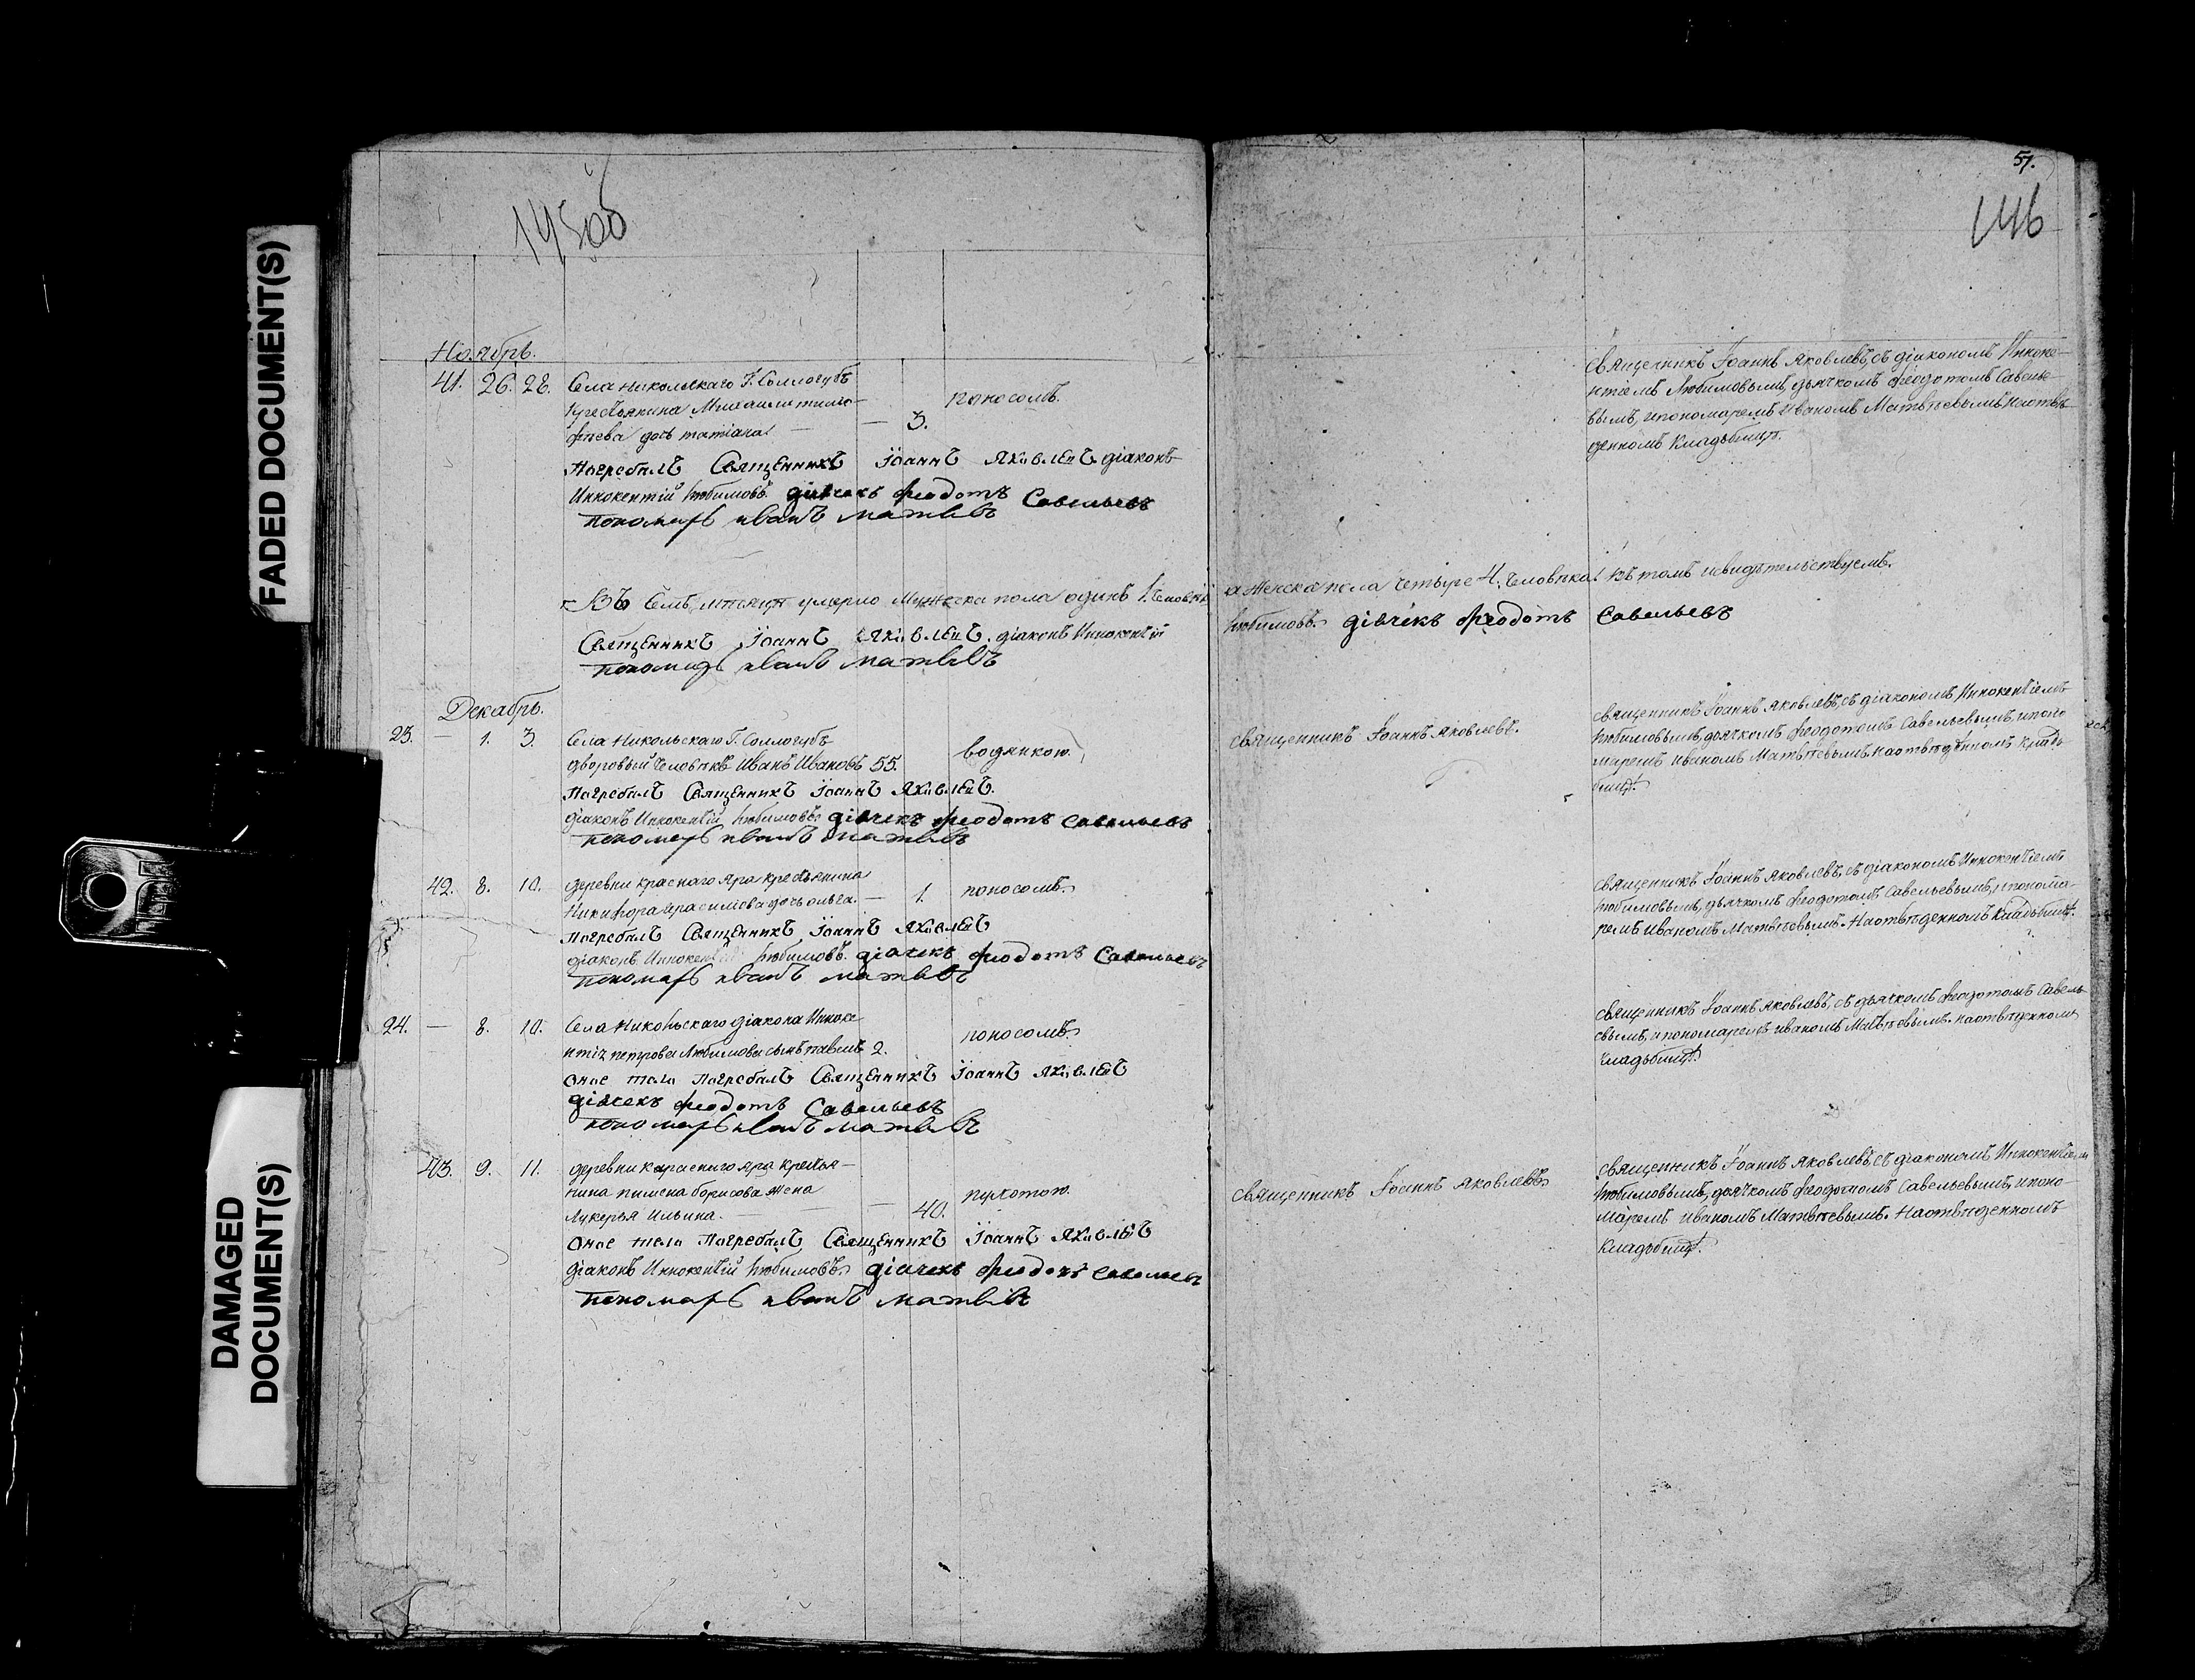 FADED DOCUMENT(S)
DAMAGED
DOCUMENT(S)
145об
Ноябрь.
41. 26. 28. Села Никольскаго Г. Соллогубъ
крестьянина Михаила тимо-
феева дочь татіана. — — 3. поносомъ.
Погребалъ Священникъ Іоаннъ Яковлевъ діаконъ
Иннокентій Любимовъ. діячекъ Феодотъ Савельевъ
пономарь иванъ матвѣвъ
Въ семъ мѣсяцѣ умерло Мужеска пола одинъ 1. человѣкъ
Священникъ Іоаннъ Яковлевъ. діаконъ Иннокентій
пономарь иванъ матвѣвъ
Декабрь.
23. — 1. 3. Села Никольскаго Г. Соллогубъ
дворовый человѣкъ Иванъ Ивановъ 55. водянкою.
Погребалъ Священникъ Іоаннъ Яковлевъ.
діаконъ Иннокентій Любимовъ. діячекъ Феодотъ Савельевъ
пономарь иванъ матвѣвъ
42. 8. 10. деревни краснаго Яра крестьянина
Никифора Герасимова дочь ольга. — 1. поносомъ.
Погребалъ Священникъ Іоаннъ Яковлевъ
діаконъ Иннокентій Любимовъ. діячекъ Феодотъ Савельевъ
пономарь иванъ матвѣвъ
24. — 8. 10. Села Никольскаго діакона Инноке-
нтія петрова Любимова сынъ павелъ 2. поносомъ.
Оное тело Погребалъ Священникъ Іоаннъ Яковлевъ
діячекъ Феодотъ Савельевъ
пономарь иванъ матвѣвъ
43. 9. 11. деревни краснаго яра крестья-
нина пимена борисова жена
Лукерья Ильина. — — 40. чухотою.
Оное тело Погребалъ Священникъ Іоаннъ Яковлевъ
діаконъ Иннокентій Любимовъ. діячекъ Феодотъ Савельевъ
пономарь иванъ матвѣвъ
51.
146
Священникъ Іоаннъ Яковлевъ, съ діакономъ Инноке-
нтіемъ Любимовымъ, дьячкомъ Феодотомъ Савелье-
вымъ, и пономаремъ Иваномъ Матвѣевымъ, на отвѣ-
денномъ Кладбищѣ.
а Женска пола четыре 4. человѣка! въ томъ и свидѣтельствуемъ.
Любимовъ. діячекъ Феодотъ Савельевъ
Священникъ Іоаннъ Яковлевъ.
Священникъ Іоаннъ Яковлевъ, съ діакономъ Иннокентіемъ
Любимовымъ, дьячкомъ Феодотомъ Савельевымъ, и поно-
маремъ Иваномъ Матвѣевымъ на отвѣденномъ Кладь-
бищѣ.
Священникъ Іоаннъ Яковлевъ, съ діакономъ Иннокентіемъ
Любимовымъ, дьячкомъ Феодотомъ Савельевымъ, и понома-
ремъ Иваномъ Матвѣевымъ. На отвѣденномъ Кладьбищѣ.
Священникъ Іоаннъ Яковлевъ, съ дьячкомъ Феодотомъ Савель-
евымъ, и пономаремъ иваномъ Матвѣевымъ. на отвѣденномъ
Кладьбищѣ.
Священникъ Іоаннъ Яковлевъ.
Священникъ Іоаннъ Яковлевъ, съ діакономъ Иннокентіемъ
Любимовымъ, дьячкомъ Феодотомъ Савельевымъ, и поно-
маремъ иваномъ Матвѣевымъ. На отвѣденномъ
Кладьбищѣ.